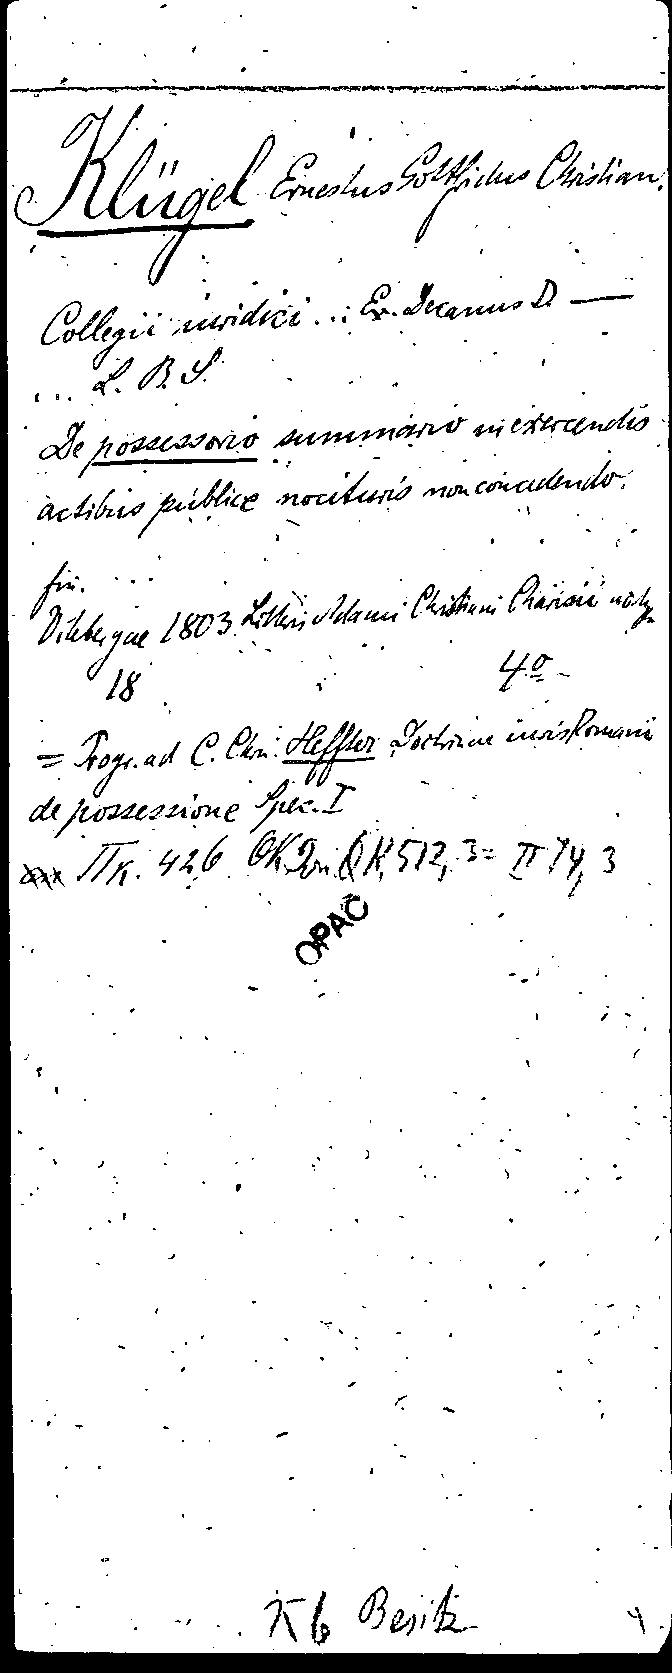 Klügel Ernestus Gottfridus Christian.
Collegii iuridici ... Ex. Decanus D. —
... L. B. S.
De possessorio summario in exercendis
actibus publice nocituris non concedendo.
fin. ...
Vitebergae 1803 Litteris Adami Christiani Charisii
18 4º
= Progr. ad C. Chri. Heffter Doctrinae iuris Romani
de possessione Spec. I
K. 426 QK 512, 3 = II 74, 3
OPAC
Besitz